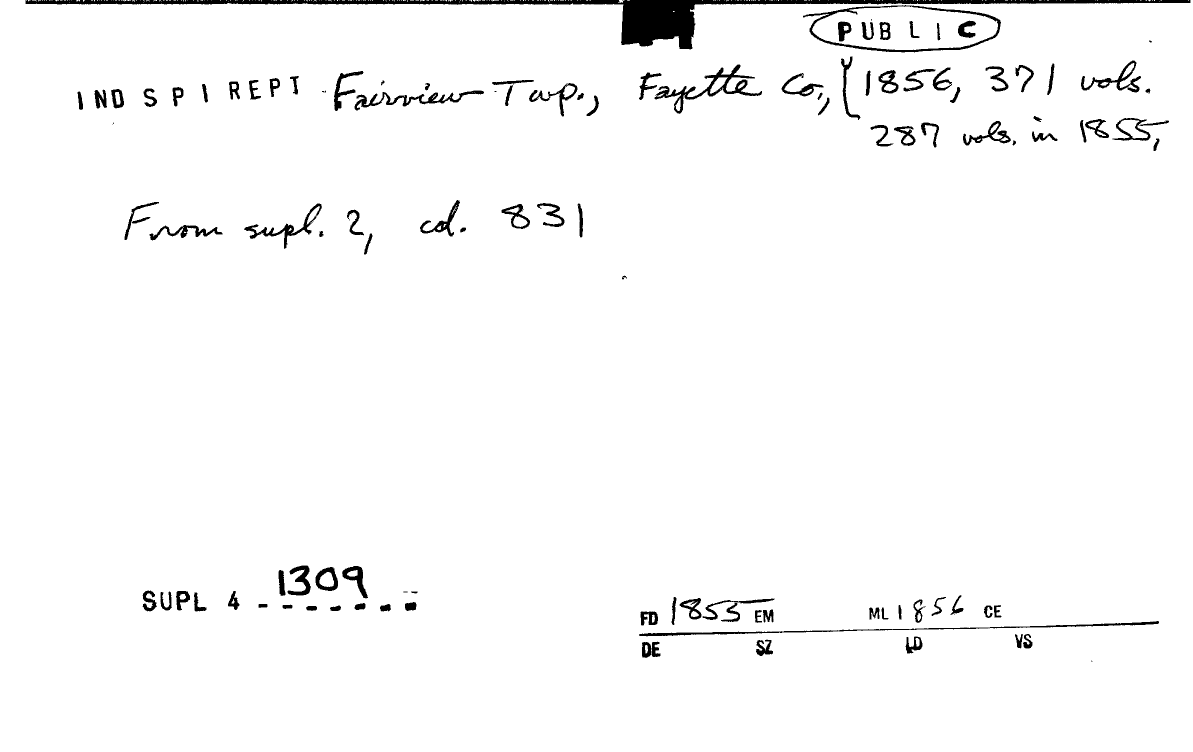 PUBLIC
IND SPI REPT Fairview Twp., Fayette Co., { 1856, 371 vols.
287 vols. in 1855,
From supl. 2, col. 831
SUPL 4 1309
FD 1855 EM ML 1856 CE
DE SZ LD VS